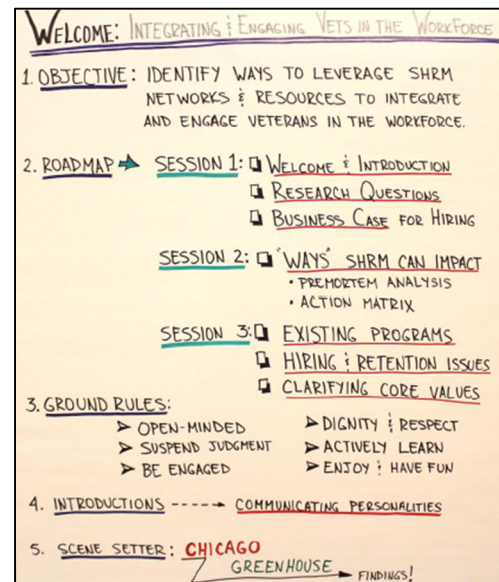 WELCOME: INTEGRATING & ENGAGING VETS IN THE WORKFORCE
1. OBJECTIVE: IDENTIFY WAYS TO LEVERAGE SHRM
NETWORKS & RESOURCES TO INTEGRATE
AND ENGAGE VETERANS IN THE WORKFORCE.
2. ROADMAP → SESSION 1: ❑ WELCOME & INTRODUCTION
❑ RESEARCH QUESTIONS
❑ BUSINESS CASE FOR HIRING
SESSION 2: ❑ "WAYS" SHRM CAN IMPACT
• PREMORTEM ANALYSIS
• ACTION MATRIX
SESSION 3: ❑ EXISTING PROGRAMS
❑ HIRING & RETENTION ISSUES
❑ CLARIFYING CORE VALUES
3. GROUND RULES:
➢ OPEN-MINDED ➢ DIGNITY & RESPECT
➢ SUSPEND JUDGMENT ➢ ACTIVELY LEARN
➢ BE ENGAGED ➢ ENJOY & HAVE FUN
4. INTRODUCTIONS ----→ COMMUNICATING PERSONALITIES
5. SCENE SETTER: CHICAGO
GREENHOUSE → FINDINGS!